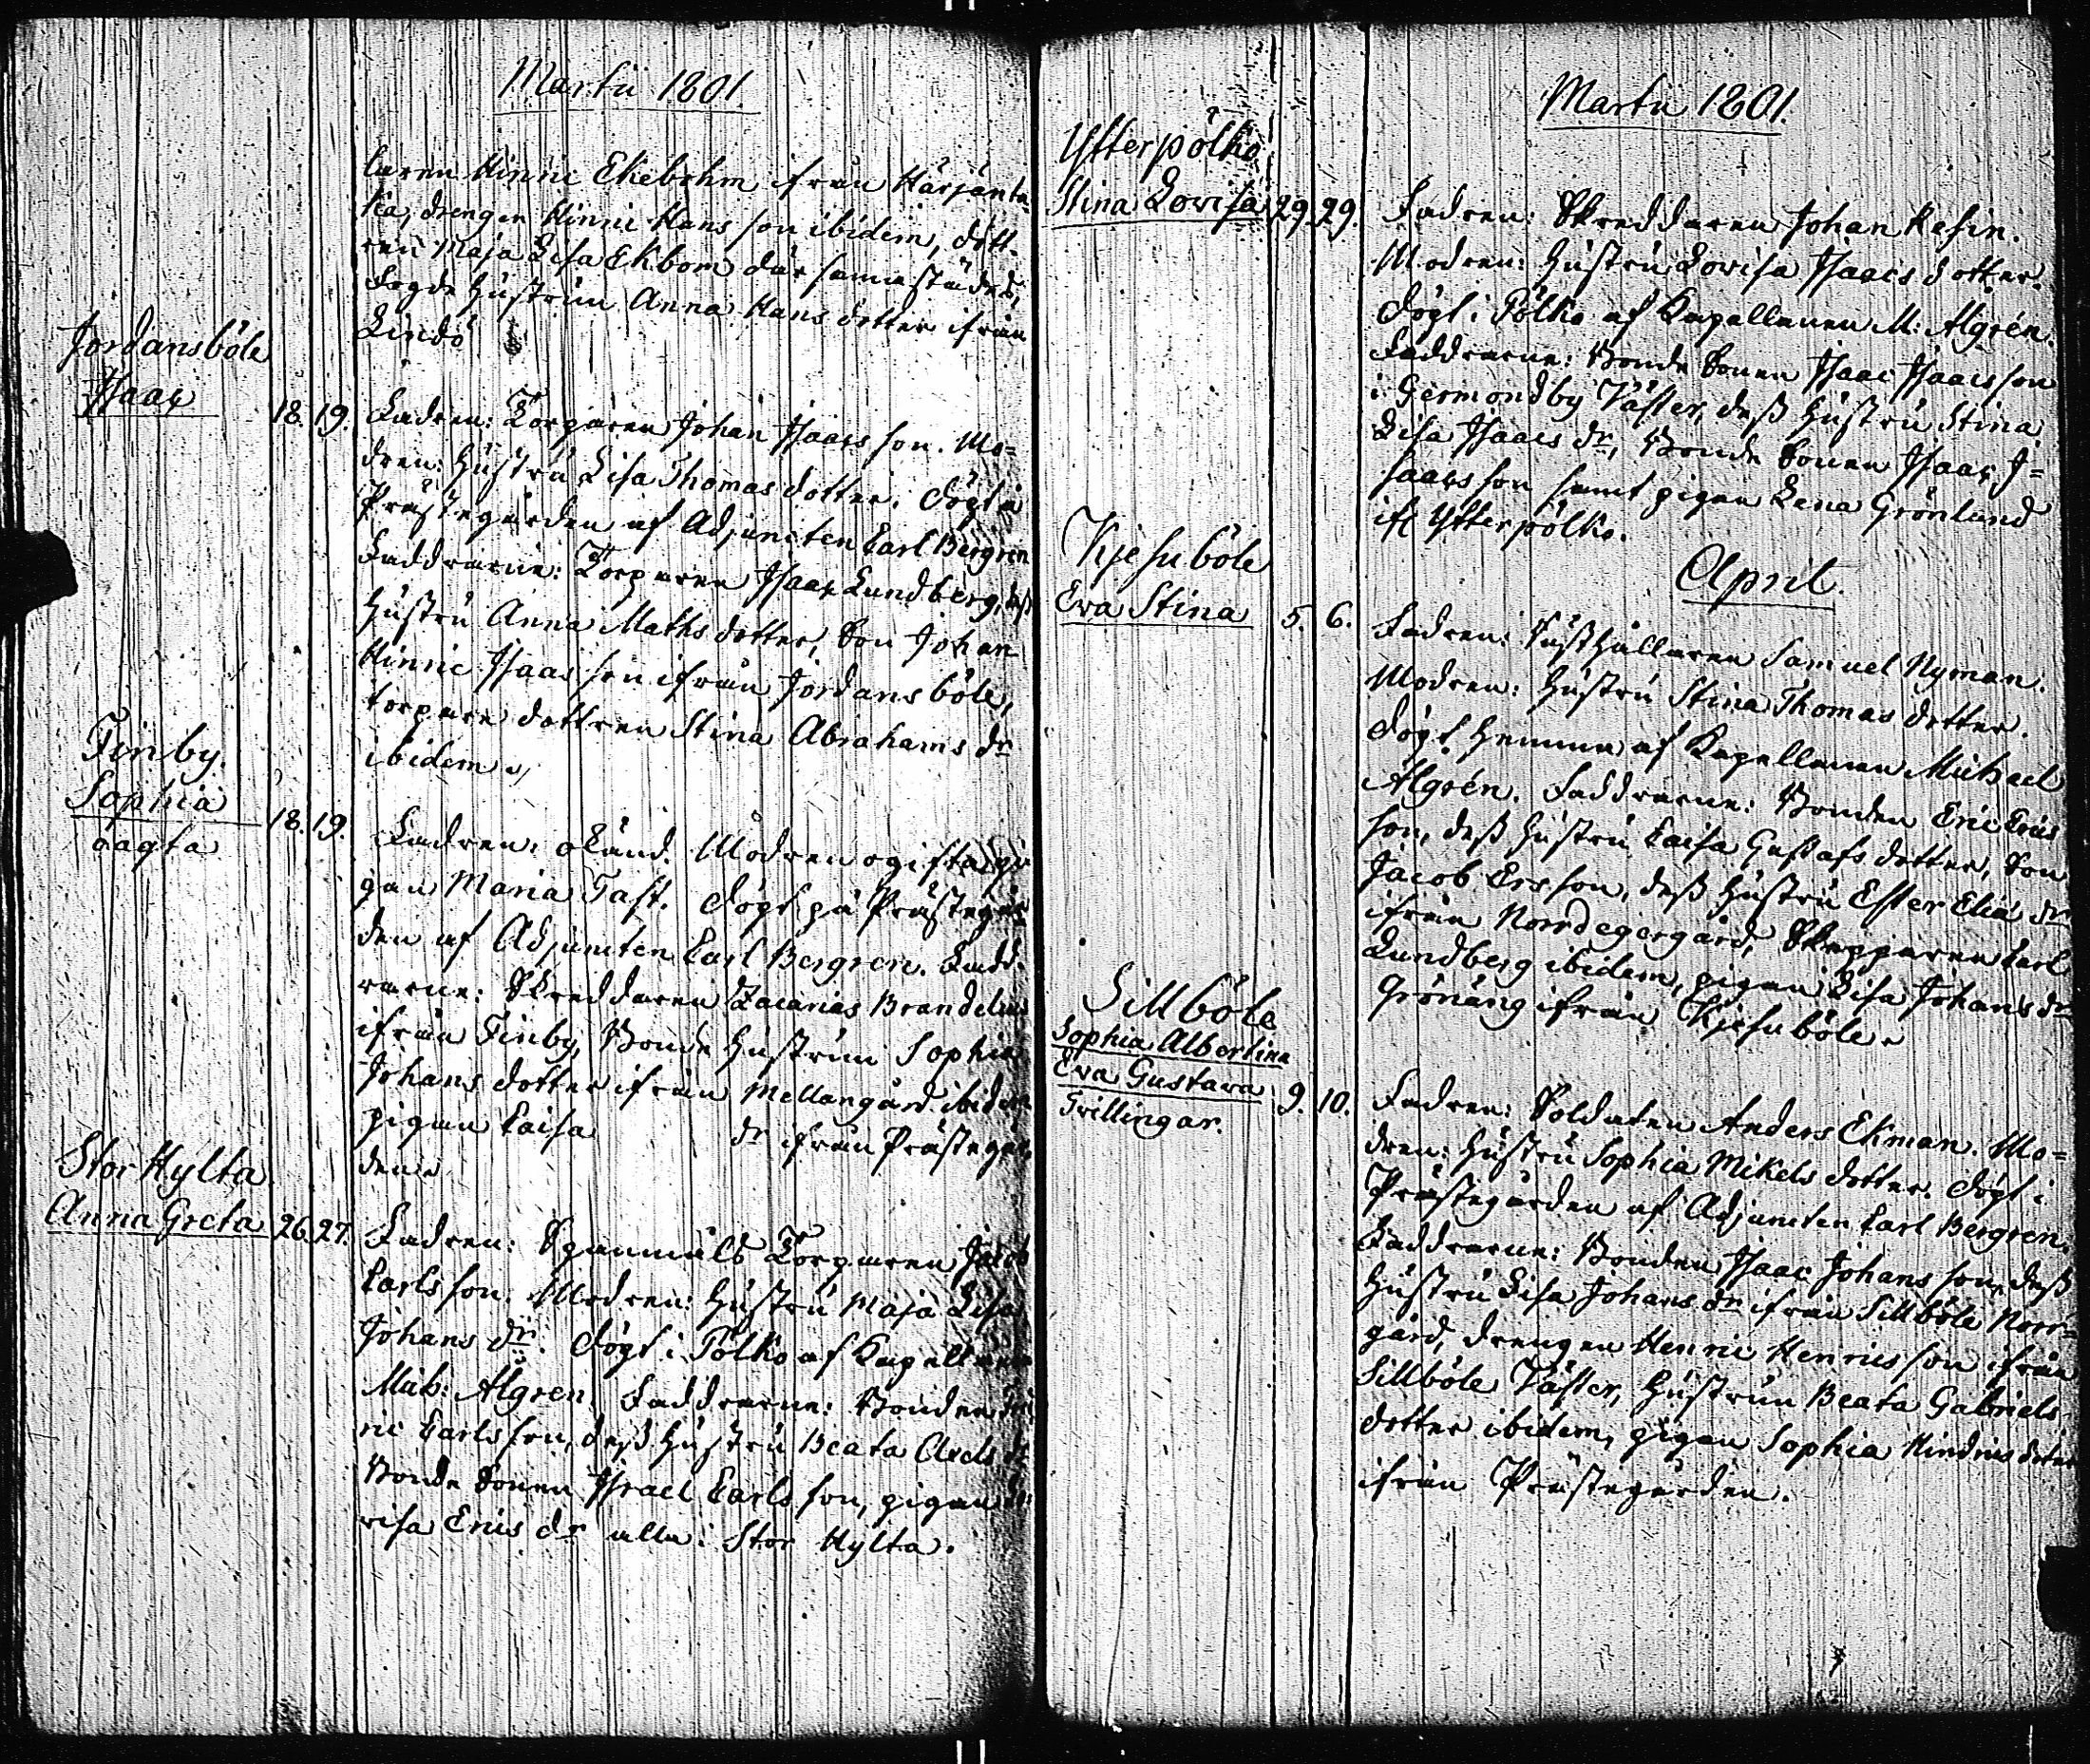 Martii 1801.
laren Hinric Ekebohm ifrån Härjänta-
ka, drengen Hinric Hans son ibidem, dött-
ren Maja Lisa Ekbom där sammastädes,
Hustrun Anna Hans dotter ifrån
Lindö
Jordansböle
Isaac
18. 19.
Fadren: Torparen Johan Isaacs son. Mo=
dren: Hustru Lisa Thomas dotter. Döpt i
Prästegården af Adjuncten Carl Bergren
Faddrarne: Torparen Isaac Lundberg, dess
Hustru Anna Maths dotter, Son Johan
Hinric Isaacs son ifrån Jordansböle,
torpare dottren Stina Abrahams dr
ibidem.
Finby
Sophia
oägta
18. 19.
Fadren: okänd. Modren ogifta pi
gan Maria Tast. Döpt på Prästegår
den af Adjuncten Carl Bergren. Fadd-
rarne: Skreddaren Zacarias Brandelius
ifrån Finby, Bonde Hustrun Sophia
Johans dotter ifrån Mellangård ibidem
pigan Caisa dr ifrån Prästegår
den.
Stor Hylta
Anna Greta
26. 27.
Fadren: Spanmåls Torparen Jacob
Carls son. Modren: Hustru Maja Lisa
Johans dr. Döpt i Pölko af Kapellanen
Mich: Algren. Faddrarne: Bonden
ric Carls son, dess Hustru Beata Arels dr
Bonde Sonen Israel Carls son, pigan Lo
visa Erics dr alla i Stor Hylta.
Martii 1801.
Ytterpölko
Stina Lovisa
29. 29.
Fadren: Skreddaren Johan Resin.
Modren: Hustru Lovisa Isaacs dotter.
Döpt i Pölko af Kapellanen M: Algrén.
Faddrarne: Bonde Sonen Isaac Isaacs son
i Germondby Väster, dess Hustru Stina
Lisa Isaacs dr, Bonde Sonen Isaac I=
saacs son samt pigan Lena Grönlund
ifr Ytterpölko.
April.
Kjesuböle
Eva Stina
5. 6.
Fadren: Rusthållaren Samuel Nyman.
Modren: Hustru Stina Thomas dotter.
Döpt hemma af Kapellanen Michael
Algrén. Faddrarne: Bonden Eric Erics
son, dess Hustru Caisa Gustafs dotter, Son
Jacob Ersson, dess Hustru Ester Elia dr
ifrån Norrdegergård, Skepparen Carl
Lundberg ibidem, pigan Lisa Johans dr
Grönäng ifrån Kjesuböle.
Sillböle
Sophia Albertina
Eva Gustava
Tvillingar.
9. 10.
Fadren: Soldaten Anders Ekman. Mo=
dren: Hustru Sophia Mikels dotter. Döpt i
Prästegården af Adjuncten Carl Bergren.
Faddrarne: Bonden Isaac Johans son, dess
Hustru Lisa Johans dr ifrån Sillböle Norr=
gård, drengen Henric Henrics son ifrån
Sillböle Väster, Hustrun Beata Gabriels
dotter ibidem, pigan Sophia Hindrics dotter
ifrån Prästegården.